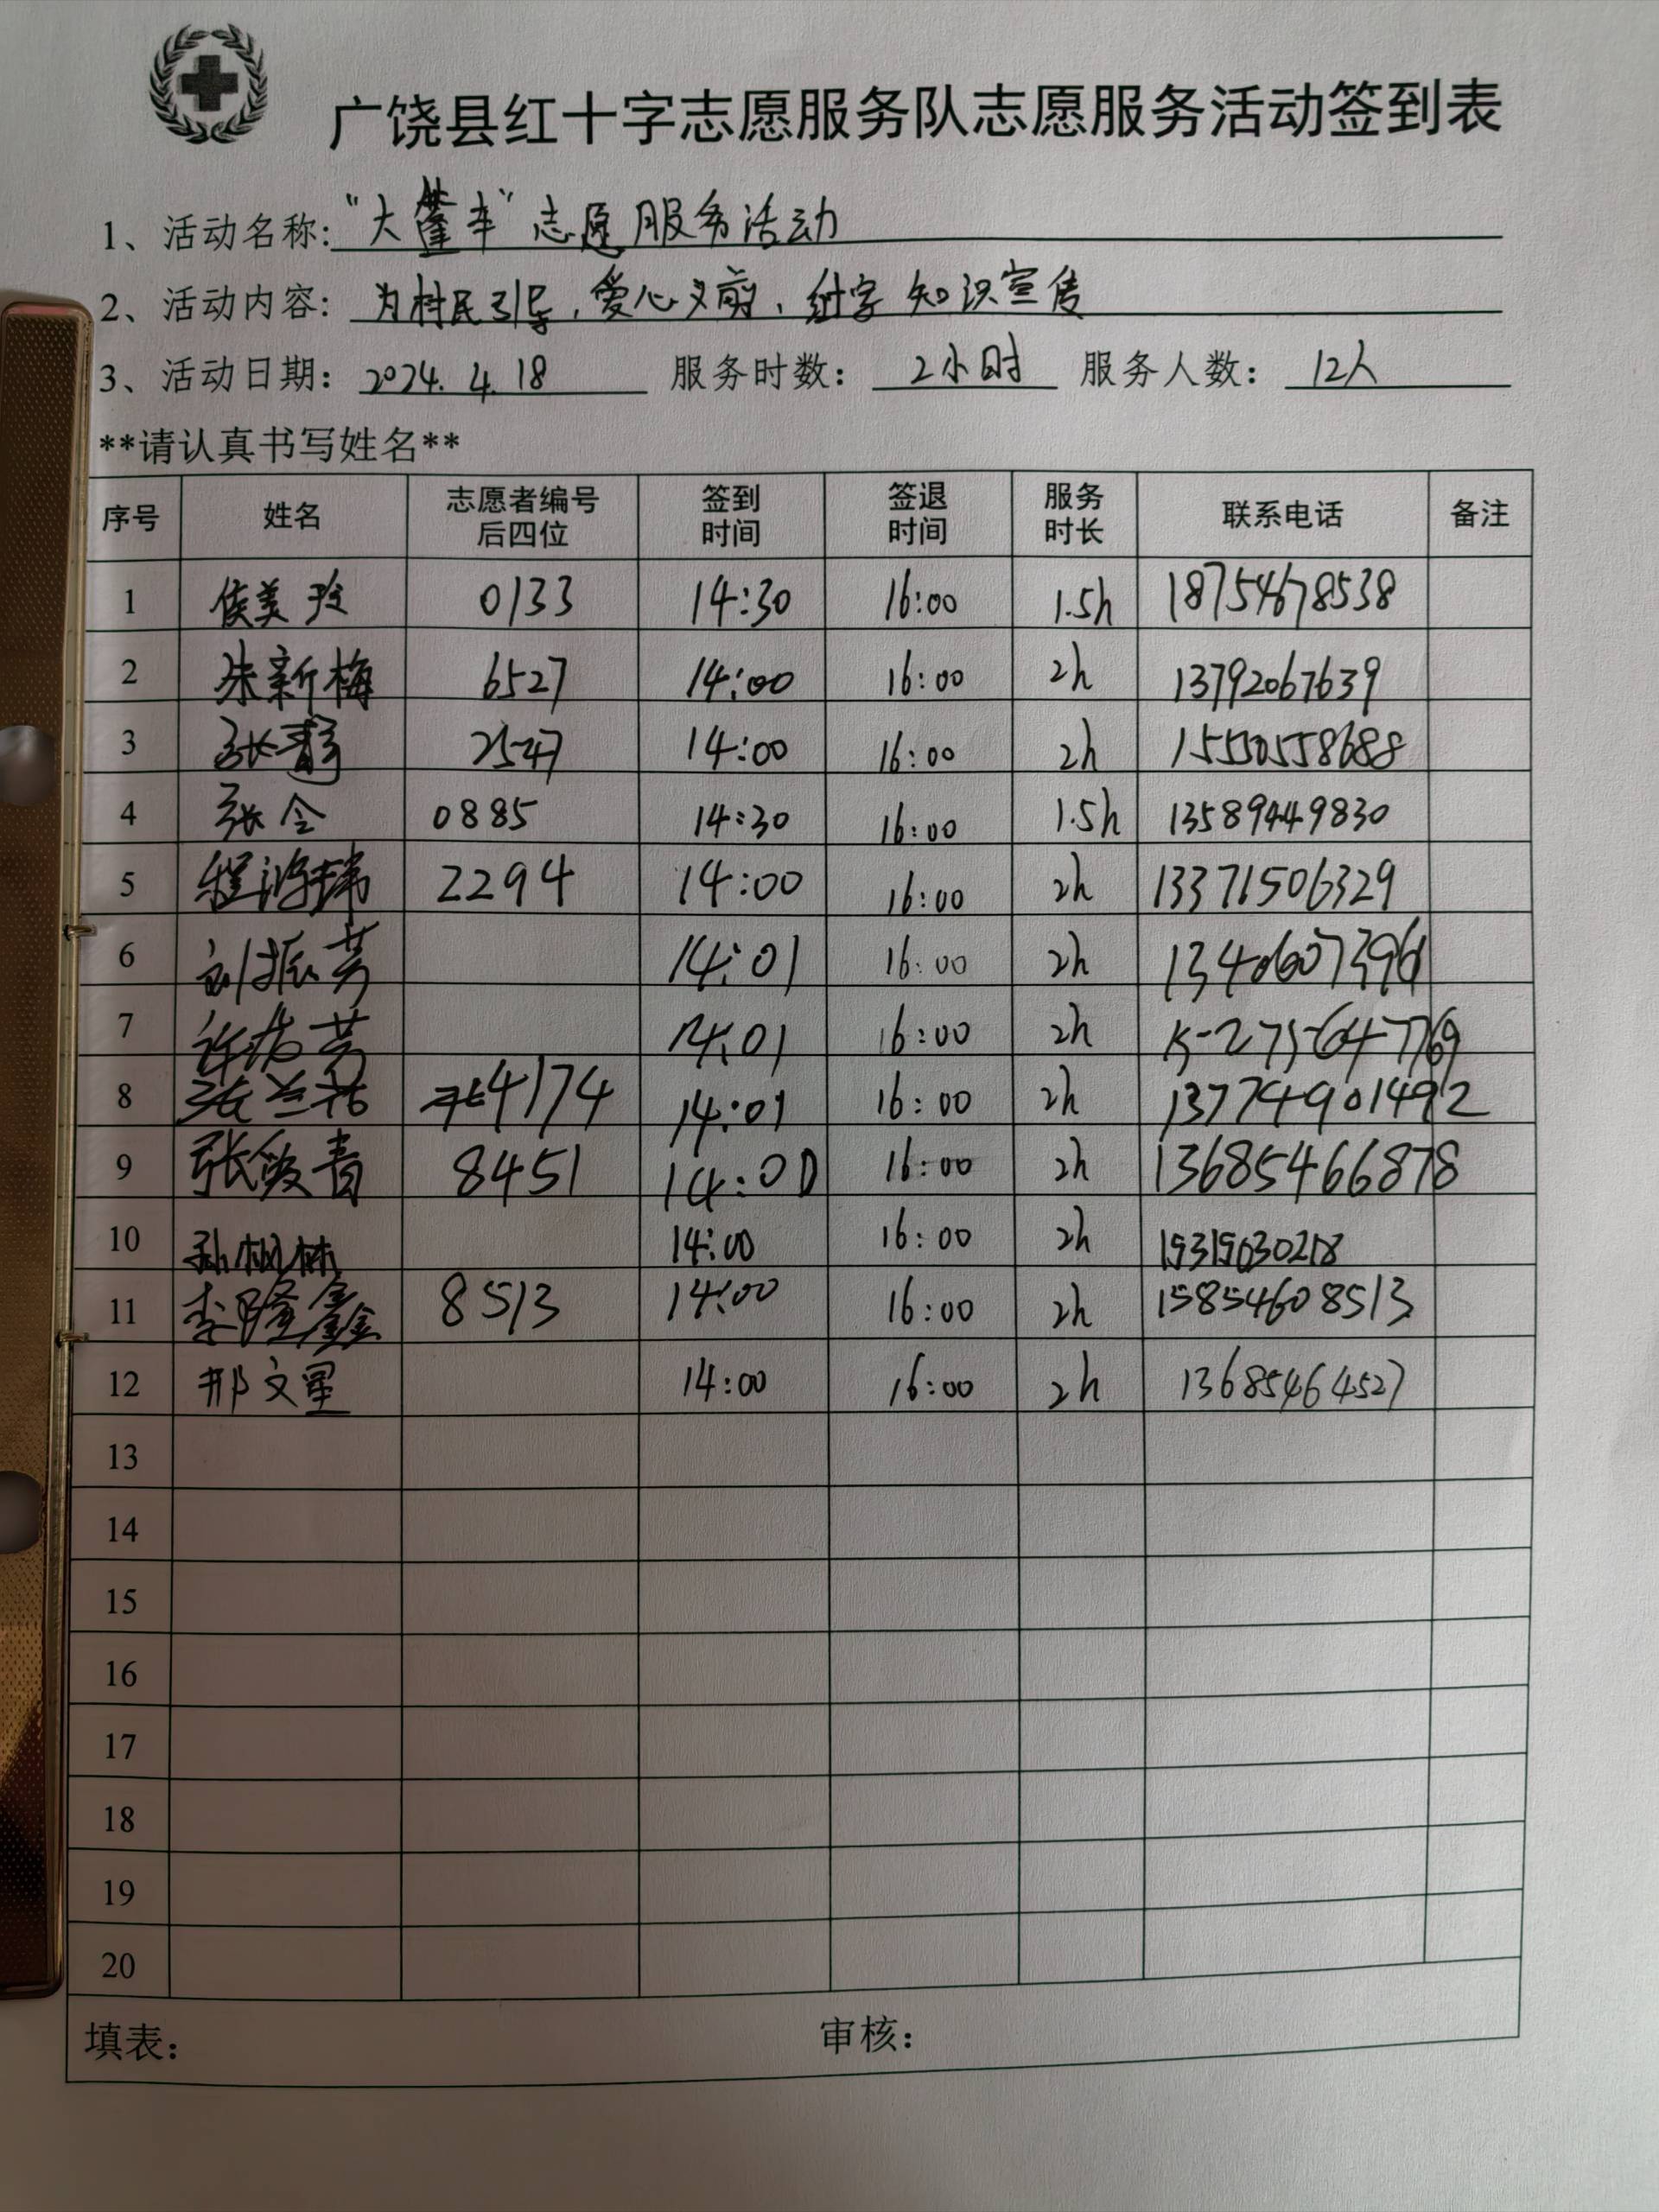 广饶县红十字志愿服务队志愿服务活动签到表
1、活动名称:“大篷车”志愿服务活动
2、活动内容: 为村民引导,爱心义剪,红字知识宣传
3、活动日期: 2024.4.18 服务时数: 2小时 服务人数: 12人
**请认真书写姓名**
序号 姓名 志愿者编号后四位 签到时间 签退时间 服务时长 联系电话 备注
1 侯美玲 0133 14:30 16:00 1.5h 18754678538
2 朱新梅 6527 14:00 16:00 2h 13792067639
3 张静 2547 14:00 16:00 2h 15550558688
4 张令 0885 14:30 16:00 1.5h 13589449830
5 程鸿玮 2294 14:00 16:00 2h 13371506329
6 刘振芳 14:01 16:00 2h
7 许 芳 14:01 16:00 2h
8 张兰 4174 14:01 16:00 2h 13774901492
9 张俊青 8451 14:00 16:00 2h 13685466878
10 孙桐林 14:00 16:00 2h
11 李隆鑫 8513 14:00 16:00 2h 15854608513
12 邢文星 14:00 16:00 2h 13685464527
13
14
15
16
17
18
19
20
填表: 审核: